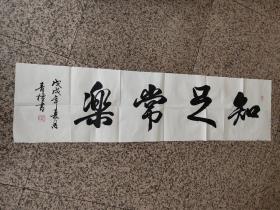 知足常樂
戊戌年春月
青桂書